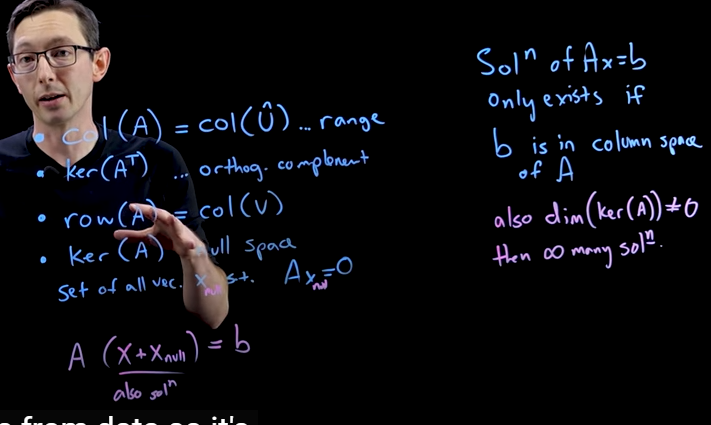 • col(A) = col(Û) ... range
• ker(Aᵀ) ... orthog. complement
• row(A) = col(V)
• ker(A) null space
set of all vec. x_null s.t. Ax_null=0
A (x+x_null) = b
also solⁿ
Solⁿ of Ax=b
only exists if
b is in column space
of A
also dim(ker(A))≠0
then ∞ many solⁿ.
from data so it's